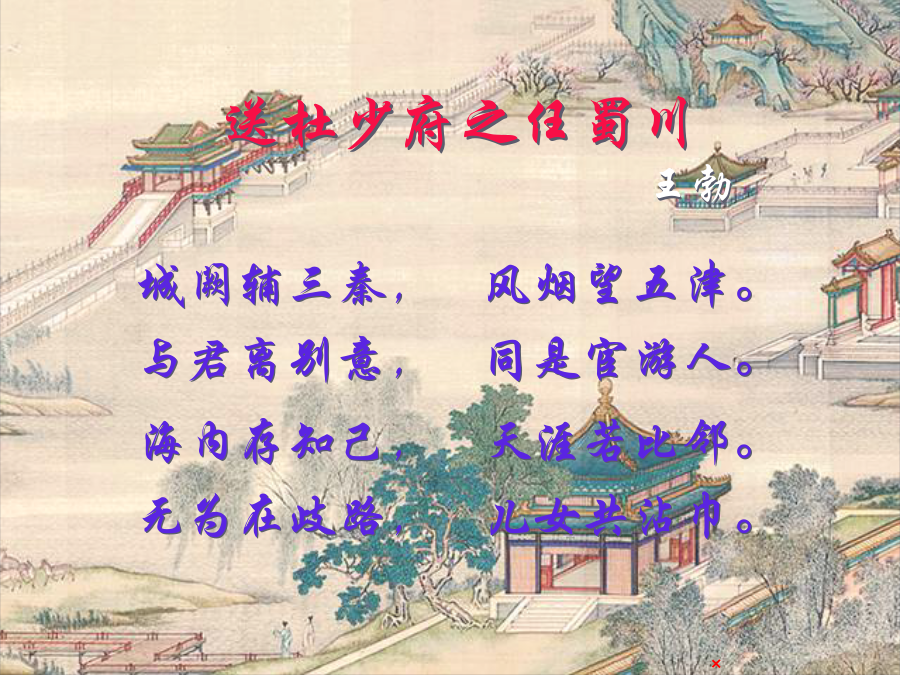 送杜少府之任蜀川
王勃
城阙辅三秦， 风烟望五津。
与君离别意， 同是宦游人。
海内存知己， 天涯若比邻。
无为在歧路， 儿女共沾巾。